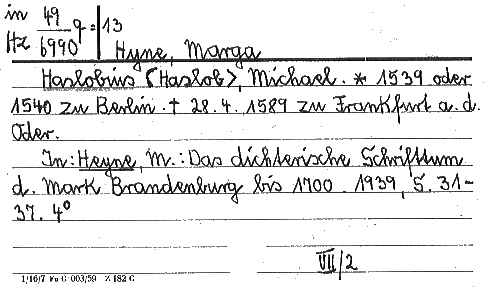 in 49 q = 13
Hz 6990
Hyne, Marga
Haslobius (Haslob>, Michael. * 1539 oder
1540 zu Berlin. † 28. 4. 1589 zu Frankfurt a. d.
Oder.
In: Heyne, M.: Das dichterische Schrifttum
d. Mark Brandenburg bis 1700. 1939, S. 31-
37. 4°
VII/2
1/16/7 Ku G 003/59 Z 182 C